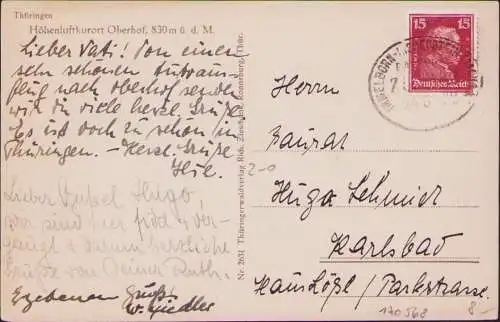 Thüringen
Höhenluftkurort Oberhof, 830 m ü. d. M.
Lieber Vati! Von einem
sehr schönen Autoaus-
flug nach Oberhof senden
wir Dir viele herzl. Grüße
Es ist doch zu schön in
Thüringen. — Herzl. Grüße
Lieber Onkel Hugo,
wir sind hier fidel u. ver-
gnügt u. herzliche
Grüße von Deiner Ruth.
Ergebenen Gruß!
W. Fiedler
Nr. 2631 Thüringerwaldverlag Rich. Zieschank, Ronneburg, Thür.
2-0
15 15
Deutsches Reich
Herrn
Baurat
Hugo Schmidt
Karlsbad
Haus Lößl / Parkstrasse.
170568
8.-